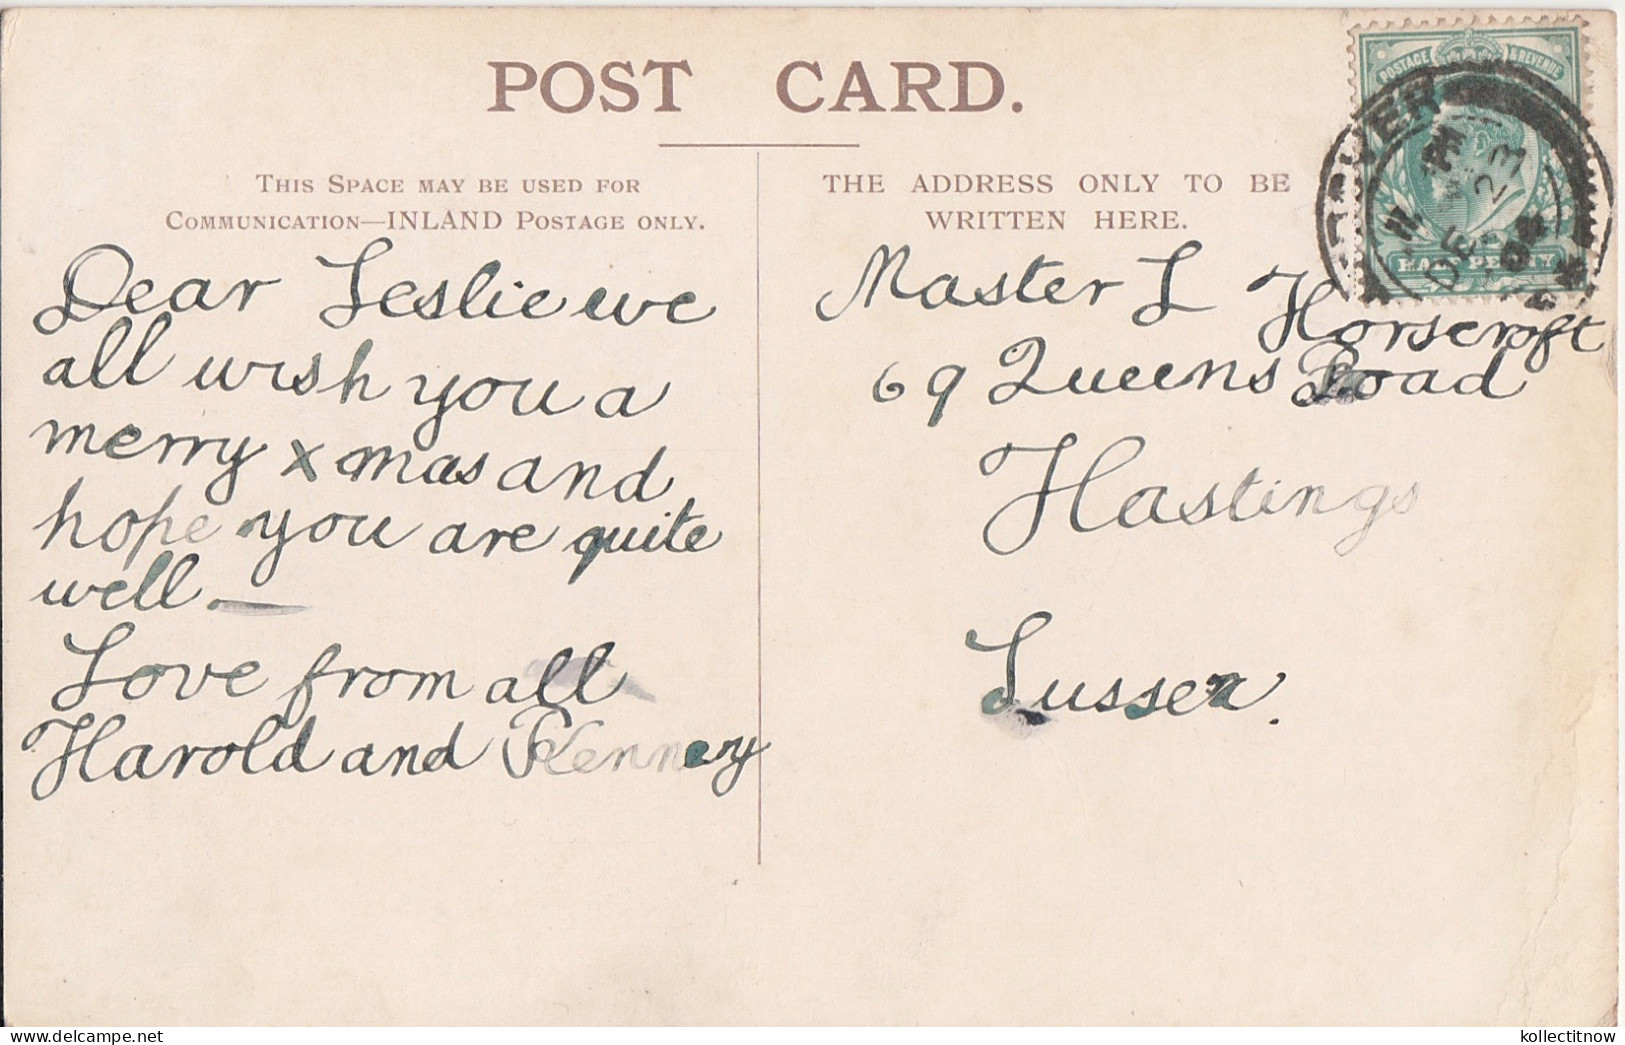 POST CARD.
THIS SPACE MAY BE USED FOR
COMMUNICATION—INLAND POSTAGE ONLY.
Dear Leslie we
all wish you a
merry xmas and
hope you are quite
well.
Love from all
Harold and
THE ADDRESS ONLY TO BE
WRITTEN HERE.
Master L Horscroft
69 Queens Road
Hastings
Sussex.
POSTAGE & REVENUE
HALFPENNY
DOVER
DE 23
kollectitnow